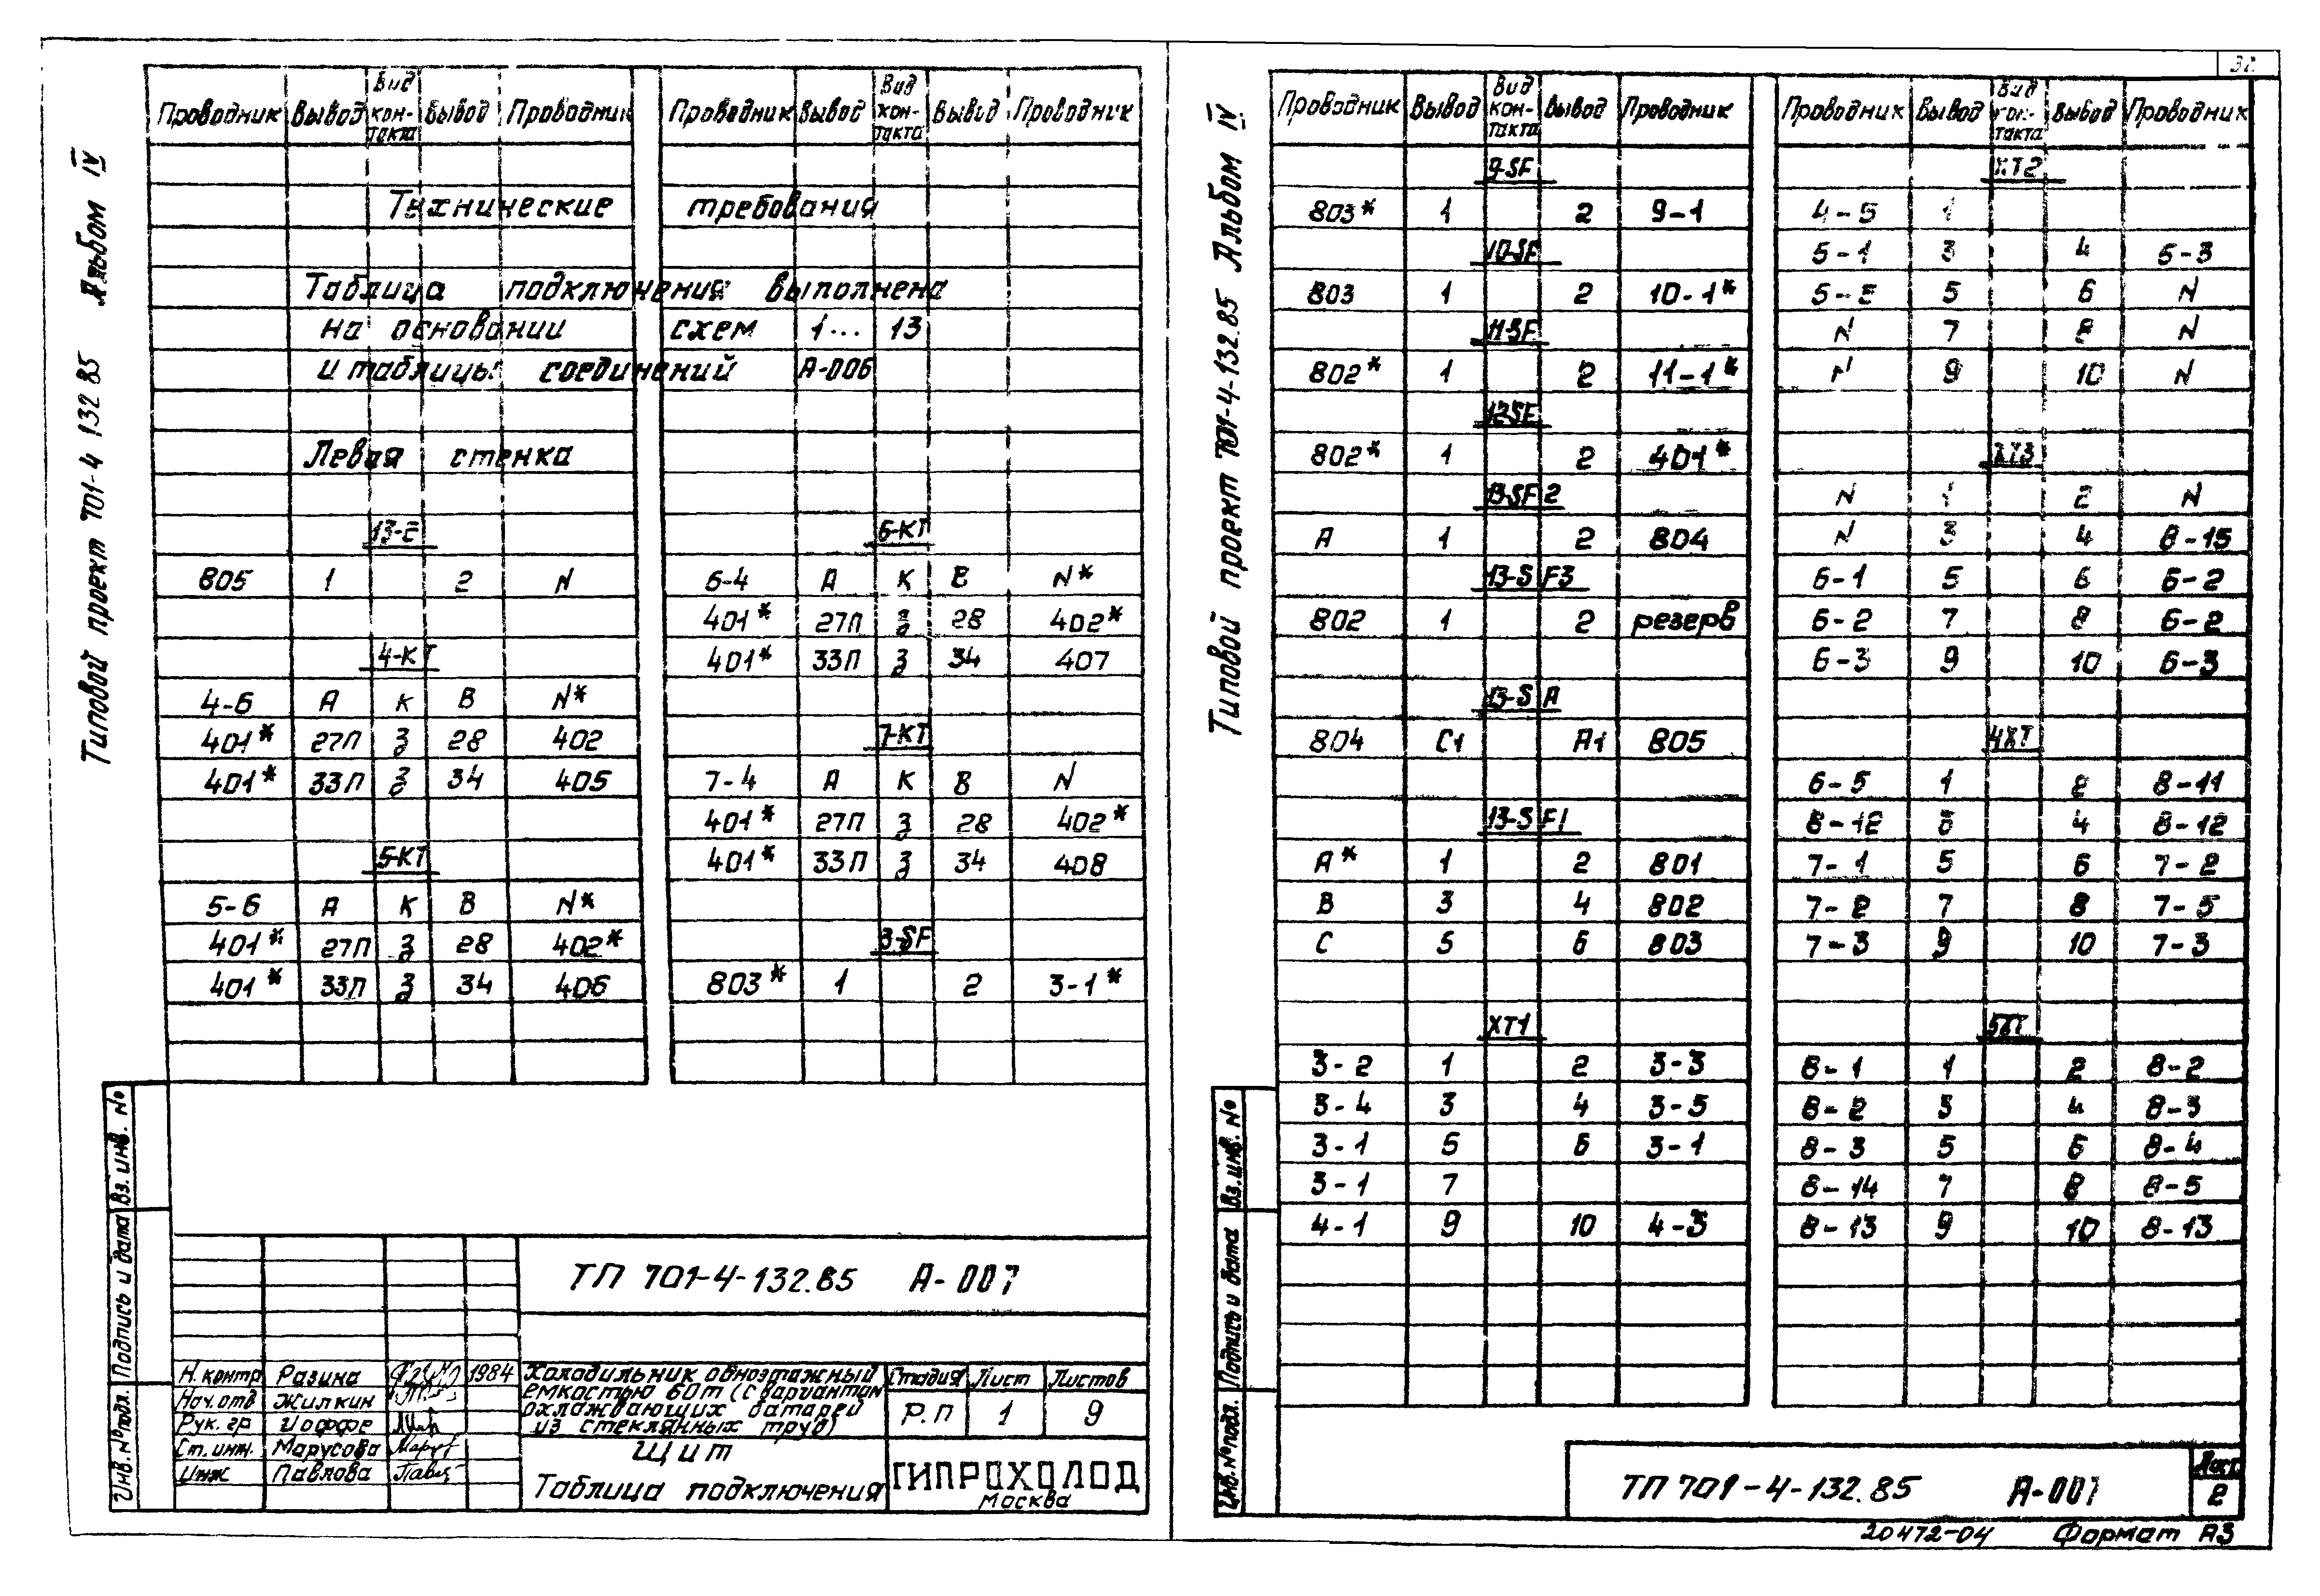 Типовой проект 701-4 132 85 Альбом IV
Проводник Вывод Вид контакта Вывод Проводник
Проводник Вывод Вид кон-такта Вывод Проводник
Технические требования
Таблица подключения выполнена
на основании схем 1... 13
и таблицы соединений А-006
Левая стенка
13-Е
805 1 2 N
4-КТ
4-6 А К В N*
401* 27П З 28 402
401* 33П З 34 405
5-КТ
5-6 А К В N*
401* 27П З 28 402*
401* 33П З 34 406
6-КТ
6-4 А К В N*
401* 27П З 28 402*
401* 33П З 34 407
7-КТ
7-4 А К В N
401* 27П З 28 402*
401* 33П З 34 408
3-SF
803* 1 2 3-1*
Вз. инв. №
Подпись и дата
Инв. № подл.
ТП 701-4-132.85 А-007
Н. контр Разина 1984
Нач. отд Жилкин
Рук. гр Иоффе
Ст. инж. Марусова
Инж Павлова
Холодильник одноэтажный
емкостью 60т (с вариантом
охлаждающих батарей
из стеклянных труб)
Щит
Таблица подключения
Стадия Лист Листов
Р.П 1 9
ГИПРОХОЛОД
Москва
32
Типовой проект 701-4-132.85 Альбом IV
Проводник Вывод Вид кон-такта Вывод Проводник
Проводник Вывод Вид кон-такта Вывод Проводник
9-SF
803* 1 2 9-1
10-SF
803 1 2 10-1*
11-SF
802* 1 2 11-1*
12-SF
802* 1 2 401*
13-SF2
А 1 2 804
13-SF3
802 1 2 резерв
13-SА
804 С1 А1 805
13-SF1
А* 1 2 801
В 3 4 802
С 5 6 803
ХТ1
3-2 1 2 3-3
3-4 3 4 3-5
3-1 5 6 3-1
3-1 7
4-1 9 10 4-3
ХТ2
4-5 1
5-1 3 4 5-3
5-5 5 6 N
N 7 8 N
N 9 10 N
ХТ3
N 1 2 N
N 3 4 8-15
6-1 5 6 6-2
6-2 7 8 6-2
6-3 9 10 6-3
4ХТ
6-5 1 2 8-11
8-12 3 4 8-12
7-1 5 6 7-2
7-2 7 8 7-5
7-3 9 10 7-3
5ХТ
8-1 1 2 8-2
8-2 3 4 8-3
8-3 5 6 8-4
8-14 7 8 8-5
8-13 9 10 8-13
Вз. инв. №
Подпись и дата
Инв. № подл.
ТП 701-4-132.85 А-007
Лист
2
20472-04 Формат А3